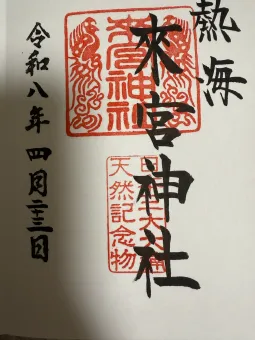 熱海
來宮神社
來宮神社
天然記念物
令和八年四月二十三日